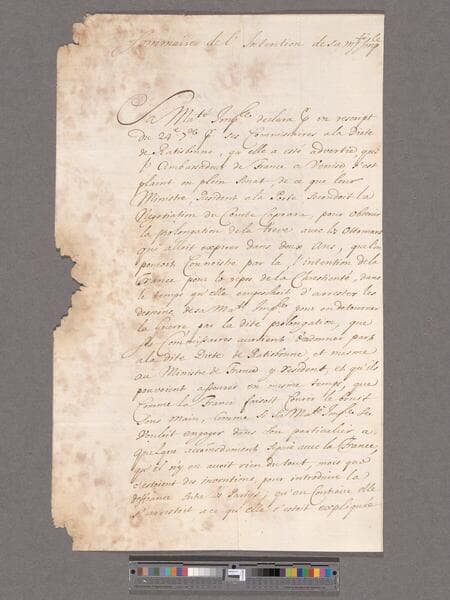 Sommaire de l'Intention de sa M.té Imp.le
Sa Ma.té Imp.le declara p.r un rescript
du 29.e 7.bre p.r ses Commissaires a la Diete
de Ratisbonne, qu'elle a esté advertie que
l'Ambassadeur de France a Venise s'est
plaint en plein Senat, de ce que leur
Ministre, Resident a la Porte secondoit la
Negotiation du Comte Caprara, pour obtenir
la prolongation de la treve avec les Ottomans
qui alloit expirer dans deux Ans, que l'on
pouvoit Connoistre par la l'intention de la
France pour le repos de la Chrestienté, dans
le temps qu'elle empeschoit d'arrester les
desseins de sa Ma.té Imp.le pour en detourner
la Guerre par la dite prolongation, que
les Commissaires auroient d'en donner part
a la dite Diete de Ratisbonne, et mesme
au Ministre de France y resident, et qu'ils
pouvoient asseurer en mesme temps, que
comme la France faisoit Courre le bruit
sous main, comme si sa Ma.té Imp.le se
vouloit engager dans son particulier a
quelque accommodement separé avec la France,
qu'il n'y en avoit rien du tout, mais que
c'estoient des inventions, pour introduire la
deffiance entre les Partys, qu'au Contraire elle
s'arrestoit a ce qu'elle s'estoit expliquée